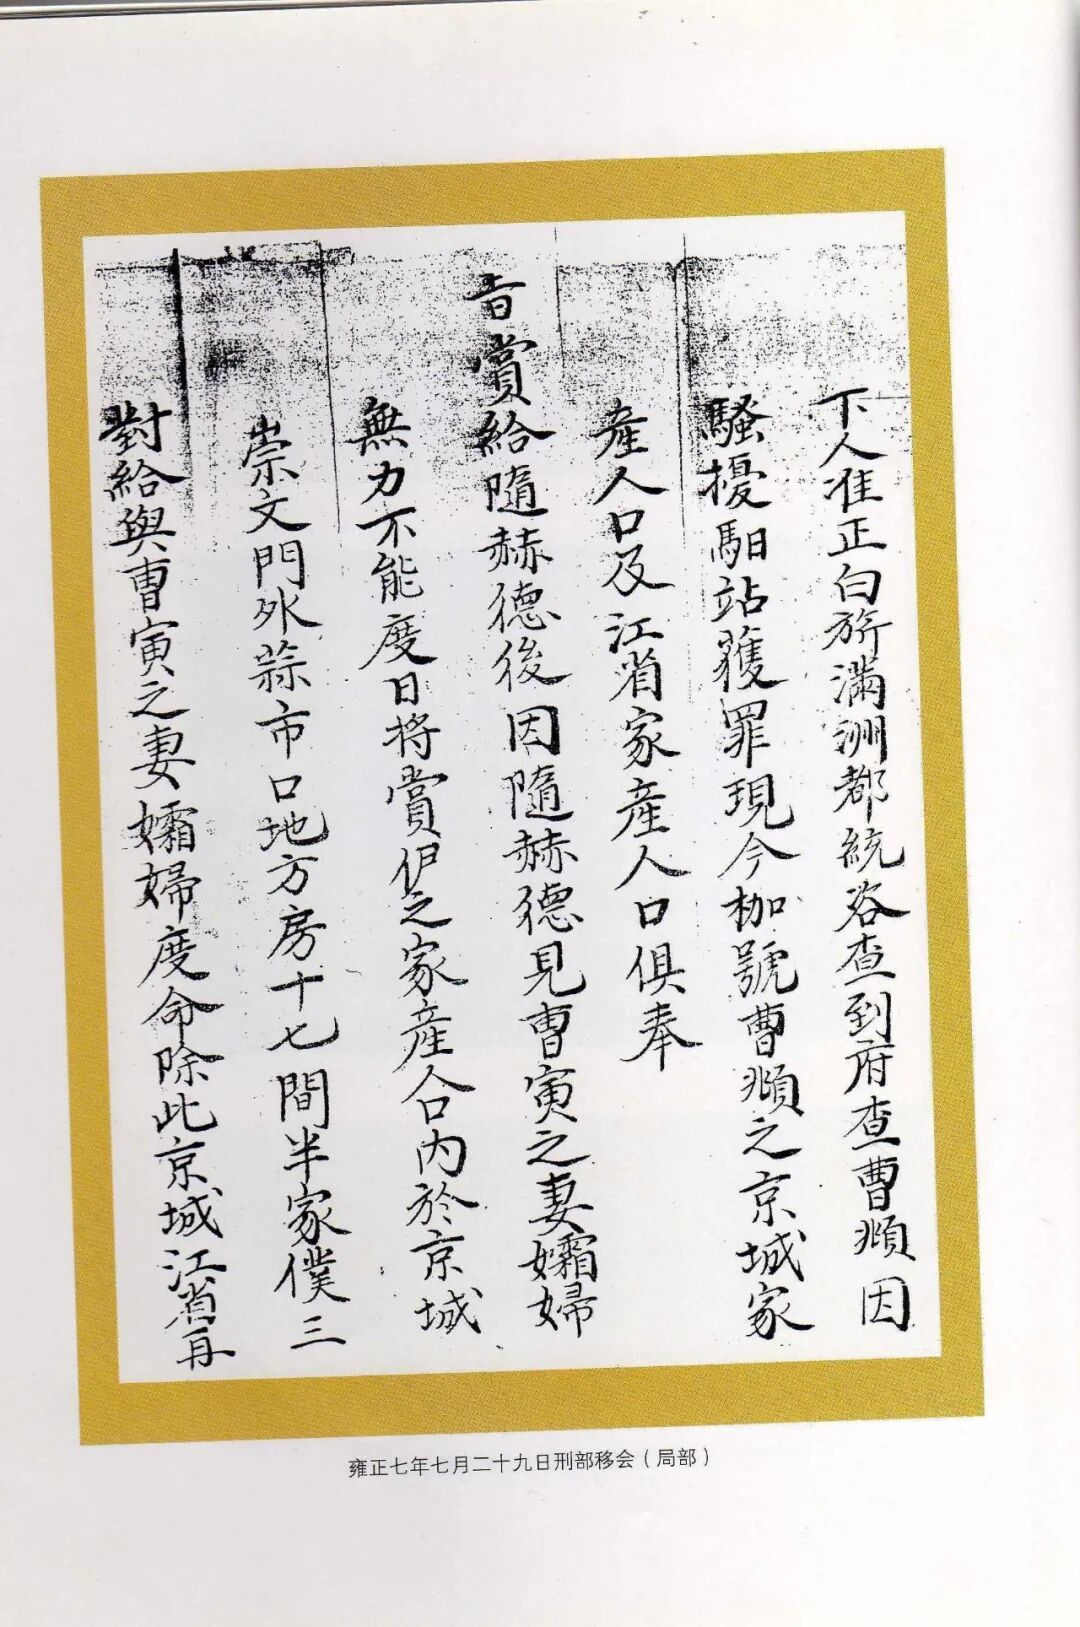 下人准正白旂滿洲都統咨查到府查曹頫因
騷擾馹站獲罪現今枷號曹頫之京城家
產人口及江省家產人口俱奉
旨賞給隨赫德後因隨赫德見曹寅之妻孀婦
無力不能度日將賞伊之家產合內於京城
崇文門外蒜市口地方房十七間半家僕三
對給與曹寅之妻孀婦度命除此京城江省再
雍正七年七月二十九日刑部移会（局部）